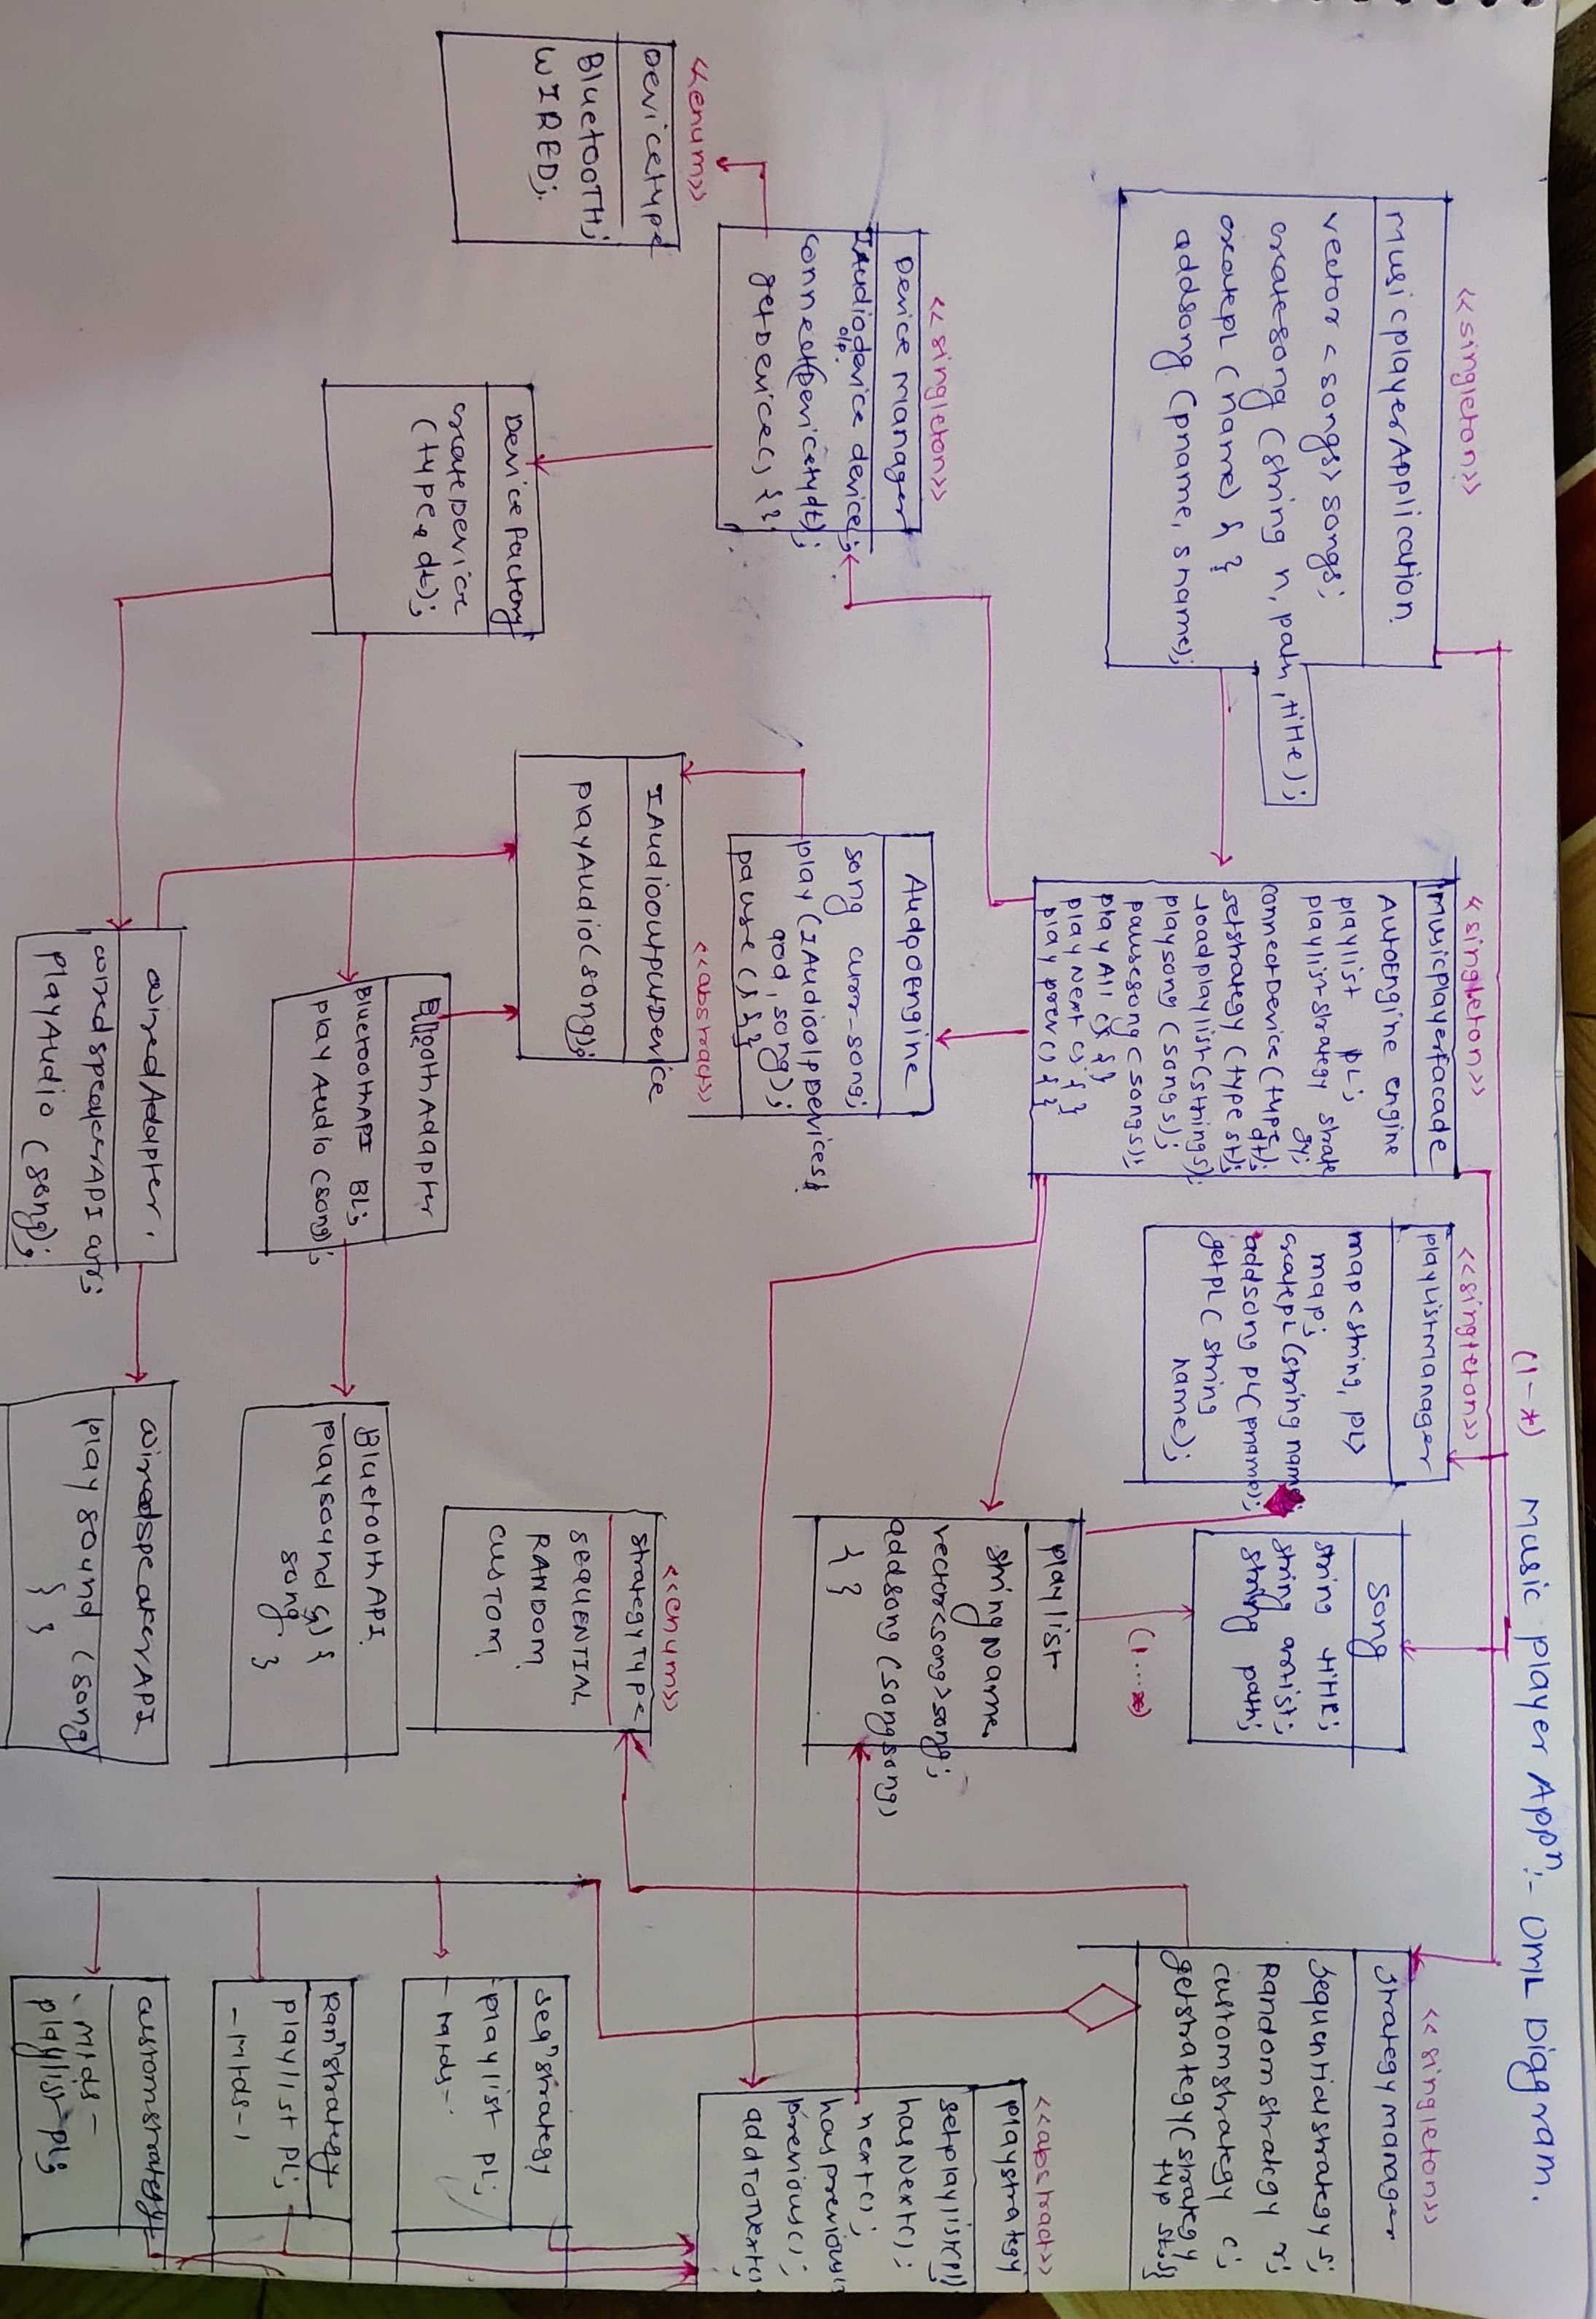 (1-*) Music player Appⁿ:- UML Diagram.
<<singleton>>
musicplayerApplication
vector <songs> songs;
createsong (string n, path, title);
createpL (name) { }
addsong (pname, sname);
<<singleton>>
musicplayerfacade
AutoEngine engine
playlist pL;
playlistStrategy strate
gy;
connectDevice (type
dt);
setstrategy (type st);
loadplaylist (string s);
playsong (song s);
pausesong (song s);
play All () { }
play Next () { }
play prev () { }
<<singleton>>
playListmanager
map <string, pL>
map;
createpL (string name);
addsong pL (pname);
getpL ( string
name);
song
string title;
string artist;
string path;
(1...*)
<<singleton>>
strategy manager
sequentialstrategy s;
Random strategy r;
customstrategy c;
getstrategy (strategy
typ st){}
playlist
string Name.
vector<song>song;
addsong (song song)
{ }
<<abstract>>
playstrategy
setplaylist(pl)
hasNext();
next();
hasprevious()
previous();
addToNext()
<<singleton>>
Device manager
IAudiodevice device;
o/p.
connect(Devicetydt);
getDevice() { }
AudioEngine
song curr-song;
play (IAudioo/pDevices
aod, song);
pause () { }
<<enum>>
Devicetype
BluetooTH;
WIRED;
<<abstract>>
IAudiooutputDevice
playAudio(song);
<<enum>>
strategyType
SEQUENTIAL
RANDOM
CUSTOM
Device factory
createDevice
(type dt);
BluetoothAdapter
BluetoothAPI BL;
play Audio (song);
BluetoothAPI
playsound () {
song
}
seqⁿstrategy
playlist pL;
- mtds-
Ranⁿstrategy
playlist pL;
- mtds-
wiredAdapter.
wiredspeakerAPI wr;
playAudio (song);
wiredspeakerAPI
play sound (song)
{ }
customstrategy
- mtds -
playlist pL;